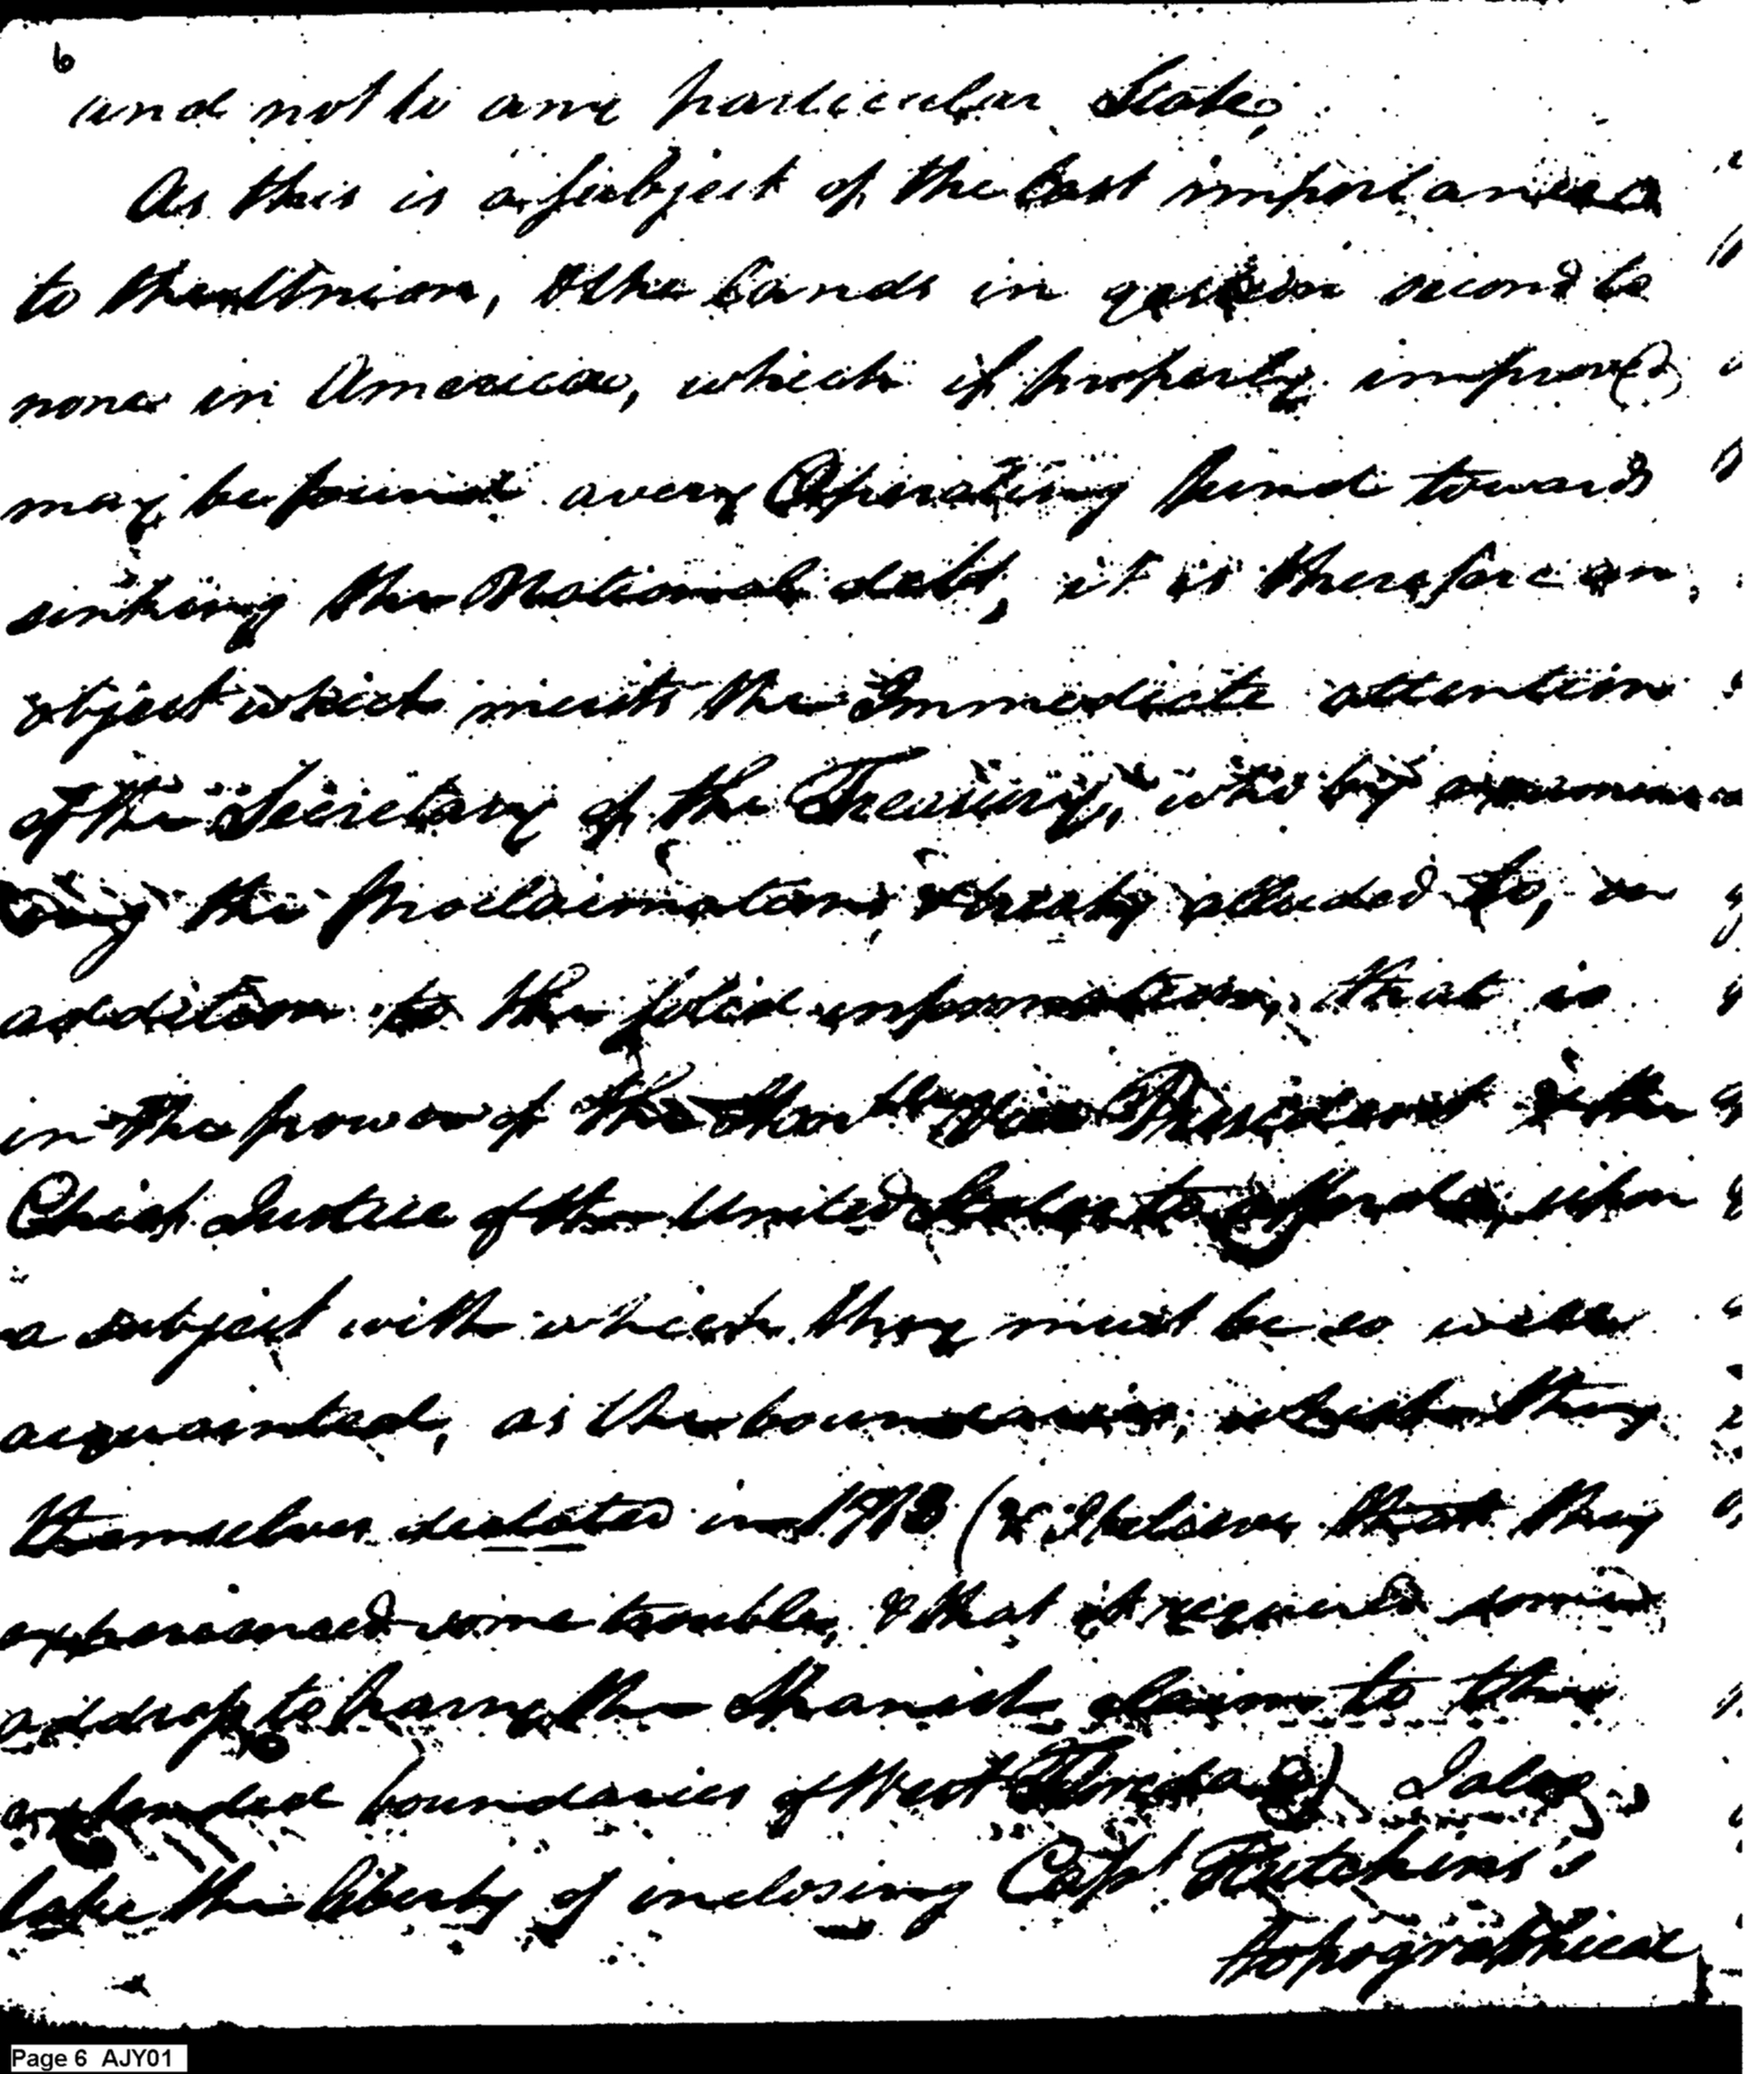 6
and not to any particular State,
As this is a subject of the last importance
to the Union, & the Lands in question second to
none in America, which if properly improved
may be found a very Operating fund towards
sinking the National debt, it is therefore an
object which merits the Immediate attention
of the Secretary of the Treasury, who by
the proclaimation, & treaty alluded to, in
addition to the solid information, that is
in the power of the Honble Vice President & the
Chief Justice of the United States to afford, upon
a subject with which they must be so well
acquainted, as the boundaries, which they
themselves dictated in (& I believe that they
experienced some trouble, & that it required some
address to the Spanish claim to the
extended boundaries of West Florida) I also
take the liberty of inclosing Capt Hutchins's
topographical
Page 6 AJY01